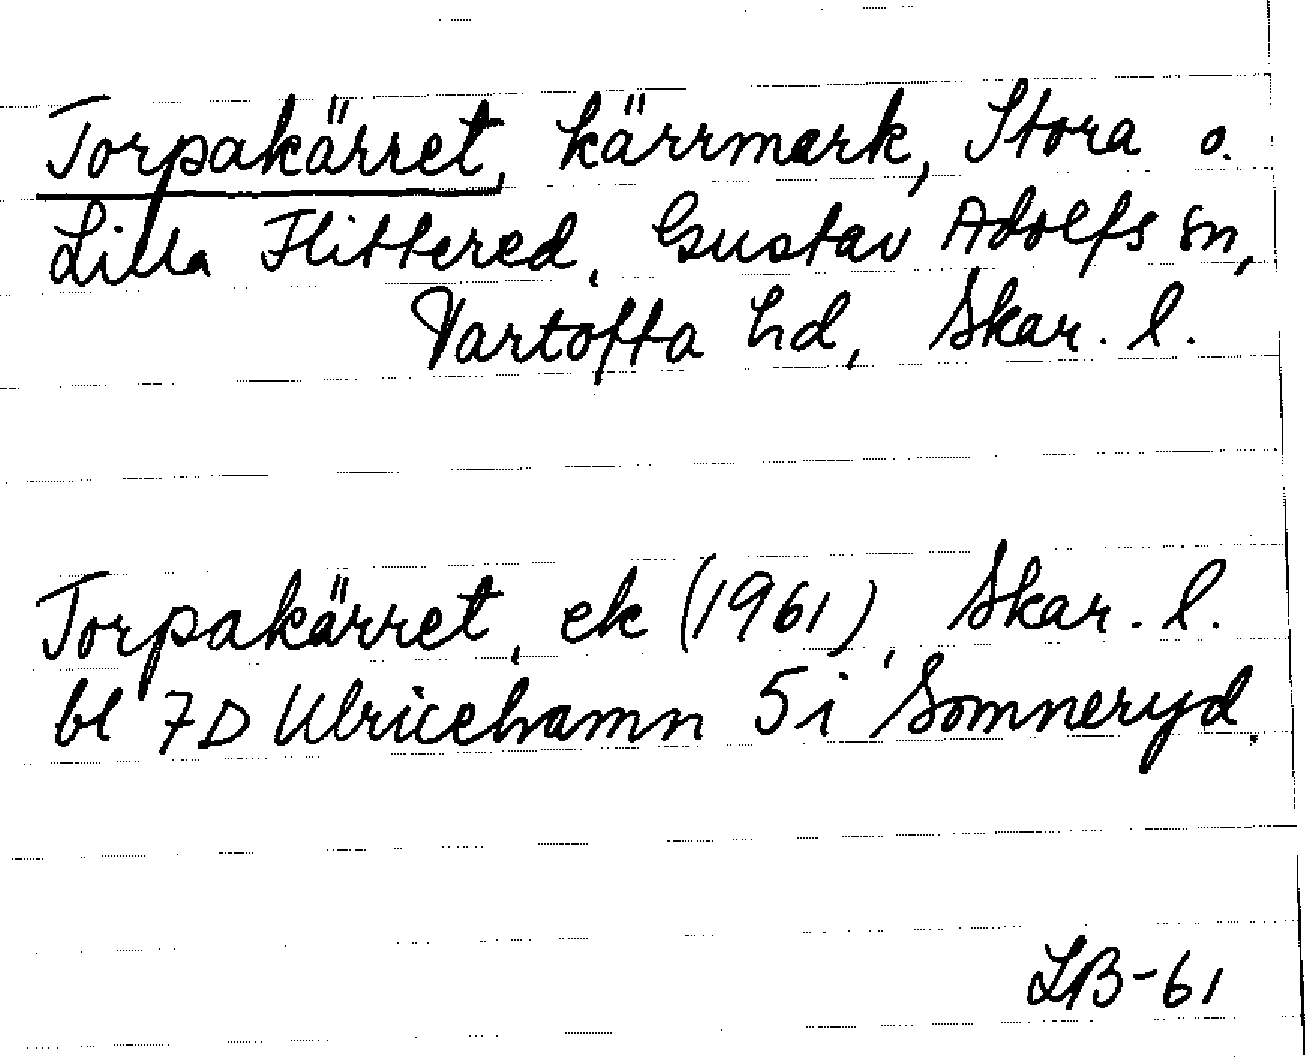 Torpakärret, kärrmark, Stora o.
Lilla Flittered, Gustav Adolfs sn,
Vartofta hd, Skar. l.
Torpakärret, ek (1961), Skar. l.
bl 7D Ulricehamn 5i Somneryd.
LB-61